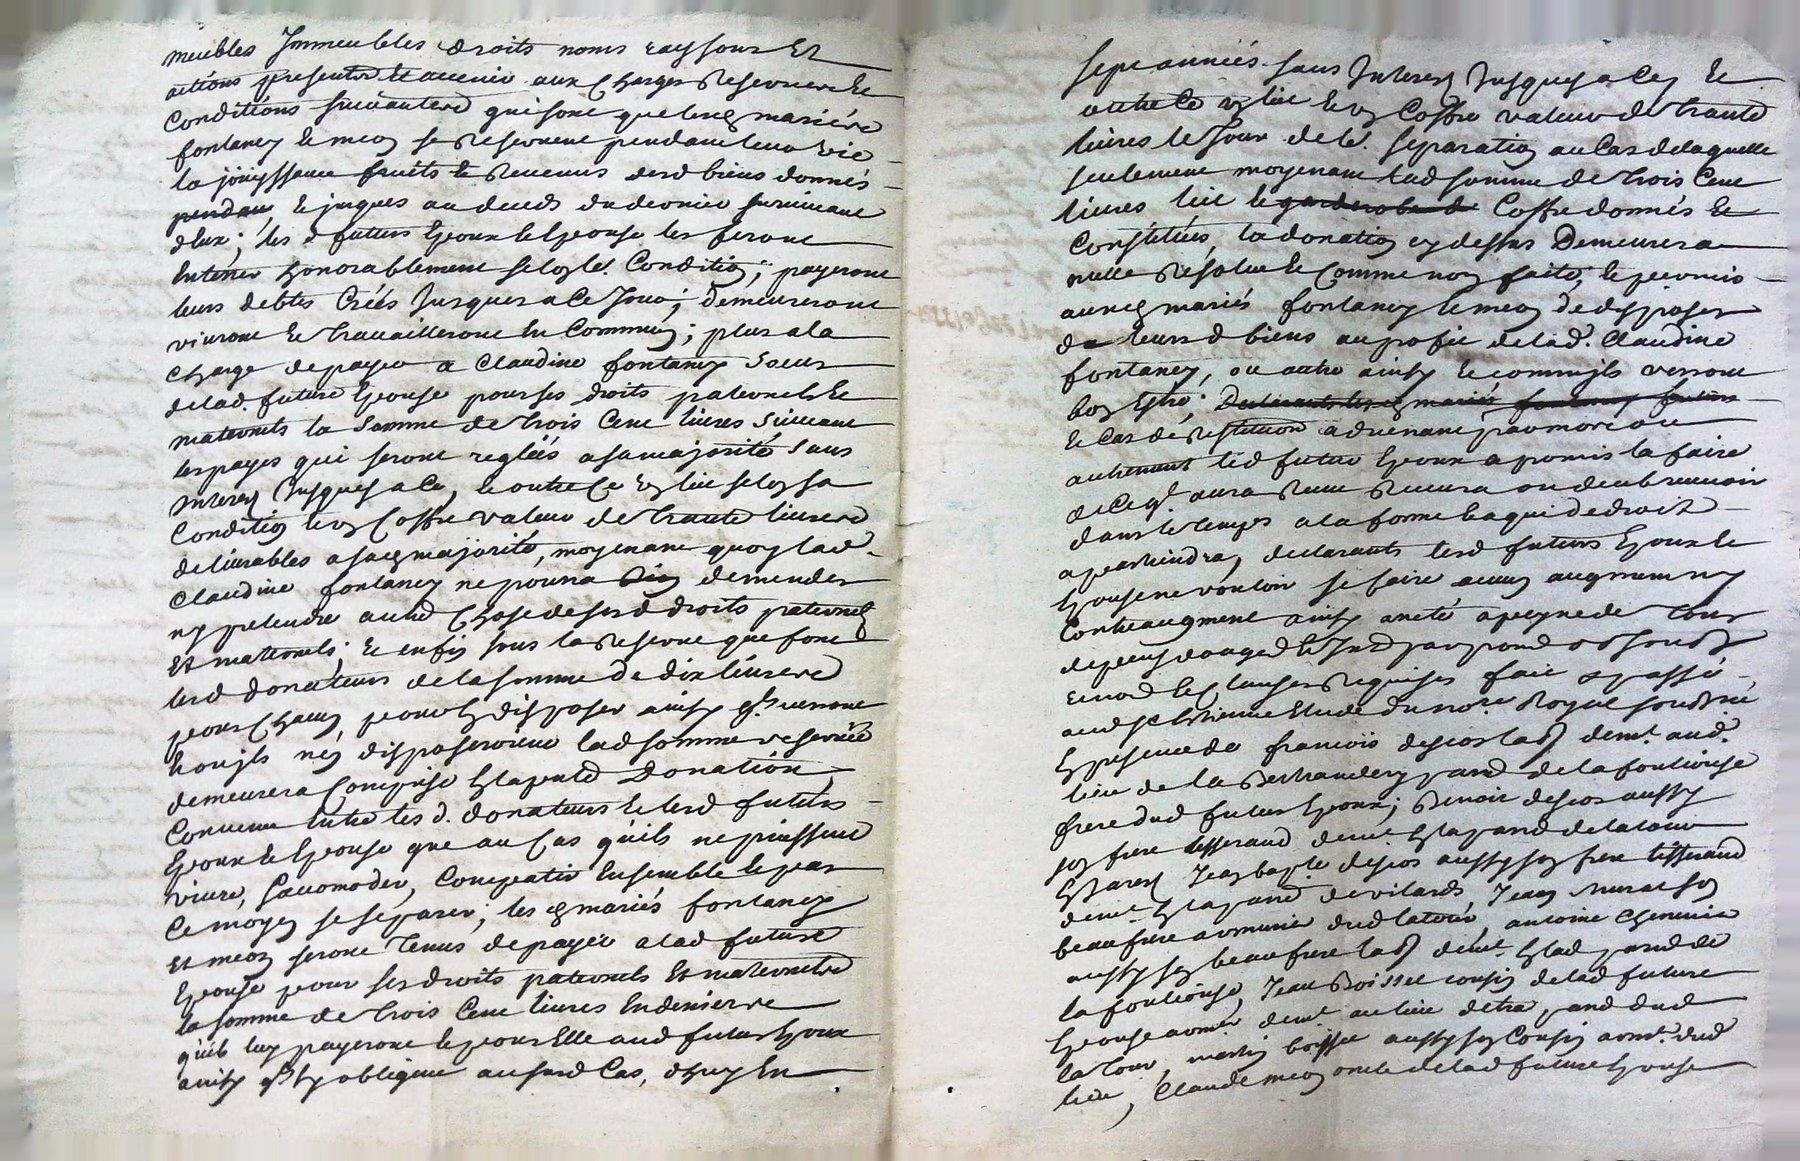 meubles Immeubles droits noms raysons Et
actions presentes et avenir aux Charges Reserves Et
Conditions suivantes qui sont que lesd mariés
fontaney le meon se Reservent pendant leur vie
la jouyssance fruits et Revenus desd biens donnés
pendant et jusques au deceds du dernier survivant
deux; les d futurs Epoux et Epouse les feront
Entérrer honorablement selon le. Condition; payeront
leurs debtes Créés Jusques a Ce Jour; Demeureront
vivront et travailleront En Commun; plus a la
charge de payer a Claudine fontaney Soeur
delad. future Epouse pour ses droits paternels Et
maternels la Somme de trois Cent livres Suivant
les payes qui seront reglées a sa majorité Sans
Interest Jusques a Ce, et outre Ce un lit selon sa
Condition et un Coffre valeur de trante livres
delivrables a sad majorité, moyenant quoy lad
Claudine fontaney ne pourra Rien demender
ny pretendre autre Chose desesd droits paternels
Et maternels; Et enfin sous la Reserve que font
lesd donateurs de la somme de dix livres
pour Chacun, pour En disposer ainsy qls verront
houjls n'en disposeroient lad somme reservée
demeurera Comprise En la pnte Donation,
Convenu Entre les d. donateurs et lesd futurs
Epoux et Epouse que au Cas quils ne puissent
vivre, sacomoder, Compatir Ensemble et par
Ce moyen se separer; les d mariés fontaney
Et meon seront tenus de payer a lad future
Epouse pour ses droits paternels Et maternels
la somme de trois Cent livres En deniers
quils luy payeront et pour Elle aud futur Epoux
ainsy qls sy obligent au susd Cas, dhuy En
sept années sans Interest Jusques a Ce, Et
outre Ce un lit et un Coffre valeur de trante
livres le Jour de lad. separation au Cas de laquelle
seulement moyenant lad somme de trois Cent
livres lit et garderobe et Coffre donnés Et
Constitués, la donation cy dessus Demeurera
nulle Resolue et Comme non faite, et permis
auxd mariés fontaney et meon de disposer
de leursd biens au profit de lad. Claudine
fontaney, ou autre ainsy et comm jls verront
bon Estre; Declarants lesd mariés fontaney futurs
Et Cas de Restitution advenant par mort ou
autrement led futur Epoux a promis la faire
de Ce ql aura Reçu Recevra ou deub recevoir
dans le temps a la forme Et a qui de droit
apartiendra, declarants lesd futurs Epoux et
Epouse ne vouloir se faire aucun augment ny
Contreaugment ainsy areté a peyne de tous
depens domages et Int par
renon et Clauses Requises fait et passé
aud St Etienne Etude du nore Royal soussné
En présence de francois descos lab demt aud.
lieu de la Bertrandery pand de la fouliouse
frere dud futur Epoux; Benoit descos aussy
son frere tisserand demt En la pand de la tour
En Jarest, Jean bapte descos aussy son frere tisserand
demt En la pand de vilards, Jean murat son
beau frere armurier dud latour, antoine Chemier
aussy son beaufrere lab demt En lad pand de
la fouliouse, Jean Boisset cousin de lad future
Epouse armr demt au lieu detra pand dud
la tour, martin boisset aussy son Cousin armr dud
lieu, Claude meon oncle de lad future Epouse